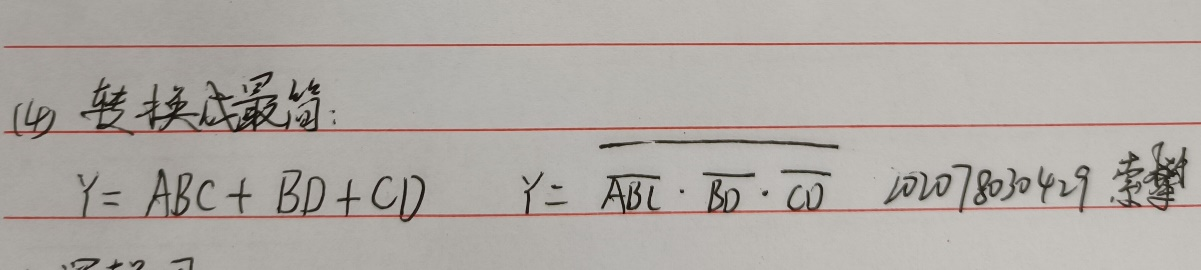 (4) 转换成最简:
Y = ABC + BD + CD Y = \overline{\overline{ABC} · \overline{BD} · \overline{CD}} 202078030429 索